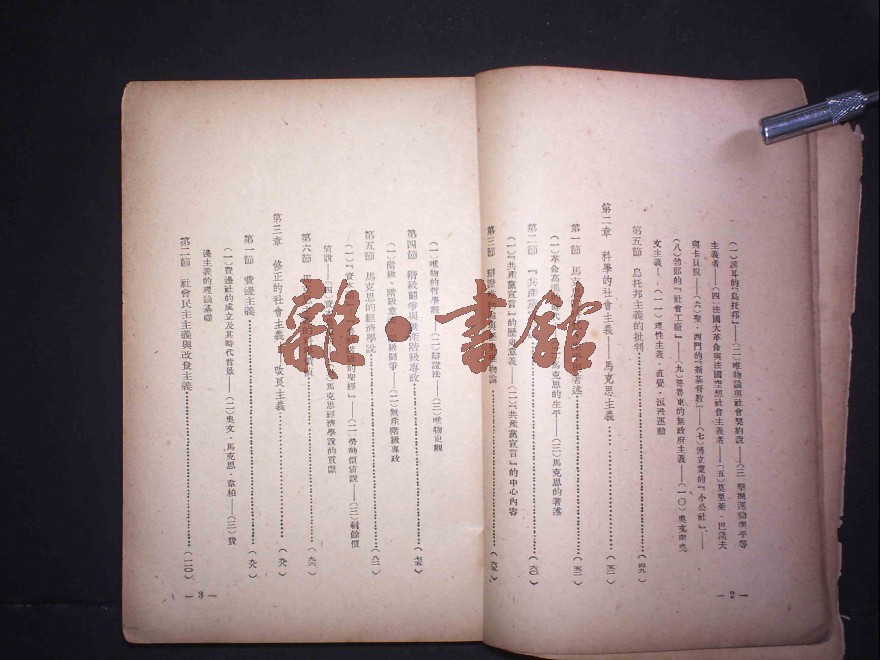 (一)莫耳的『烏托邦』——(二)唯物論與社會契約說——(三)掘地運動與平等
主義者——(四)法國大革命與法國空想社會主義者——(五)莫里萊·巴蓓夫
與卡貝說——(六)聖·西門的『新基督教』——(七)傅立葉的『小公社』——
(八)勃郎的『社會工廠』——(九)普魯東的無政府主義——(一〇)奧文
文主義——(一一)理性主義·直覺·浪漫運動
第五節 烏托邦主義的批判(四九)
第二章 科學的社會主義——馬克思主義(五一)
第一節 馬克思的著述(五一)
(一)革命高 (二)馬克思的生平——(三)馬克思的著述
第二節 『共產黨(六〇)
(一)『共產黨宣言』的歷史意義——(二)『共產黨宣言』的中心內容
第三節 辯證 物論
— 2 —
(一)唯物的哲學觀——(二)辯證法——(三)唯物史觀
第四節 階級鬭爭與無產階級專政
(一)階級·階級意 級鬭爭——(二)無產階級專政
第五節 馬克思的經濟學說(八二)
(一)『資本 的聖經』——(二)勞動價值說——(三)剩餘價
值說——(四)資 馬克思經濟學說的貢獻
第六節 馬 的
第三章 修正的社會主義——改良主義
第一節 費邊主義
(一)費邊社的成立及其時代背景——(二)奧文·馬克思·韋柏——(三)費
邊主義的理論基礎
第二節 社會民主主義與改良主義(一一〇)
— 3 —
雜·書館